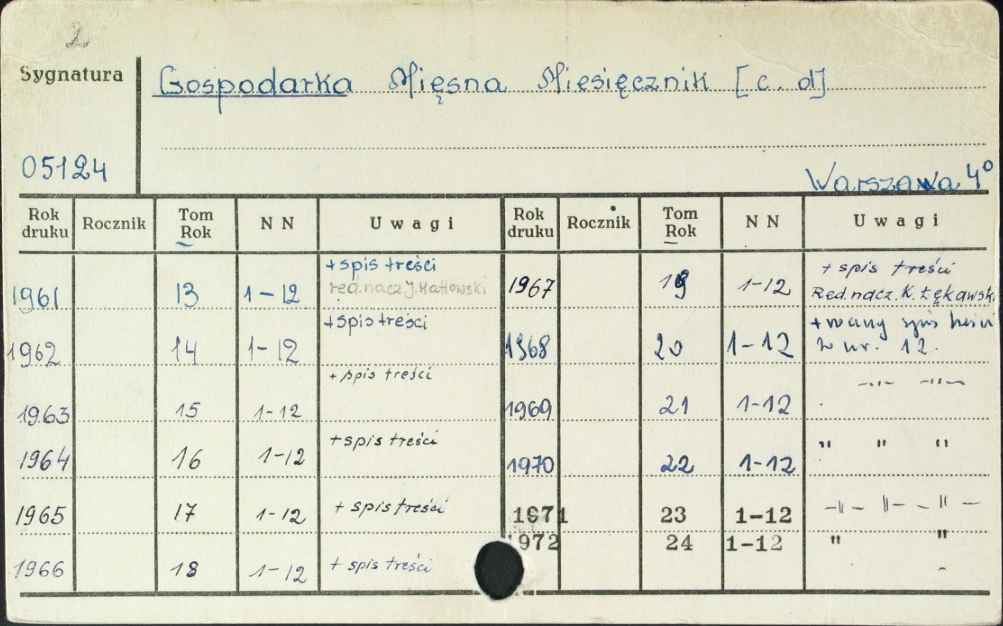 2
Sygnatura
Gospodarka Mięsna Miesięcznik [c. d]
05124
Warszawa 4°
Rok druku Rocznik Tom Rok N N Uwagi Rok druku Rocznik Tom Rok N N Uwagi
1961 13 1-12 + spis treści
red. nacz. J.
1967 19 1-12 + spis treści
Red. nacz. K. Łękawski
1962 14 1-12 + spis treści
1968 20 1-12 + spis treści
w nr. 12.
1963 15 1-12 + spis treści
1969 21 1-12 -"- -"-
1964 16 1-12 + spis treści
1970 22 1-12 " " "
1965 17 1-12 + spis treści
1971 23 1-12 -"- "- - " -
1972 24 1-12 " "
1966 18 1-12 + spis treści